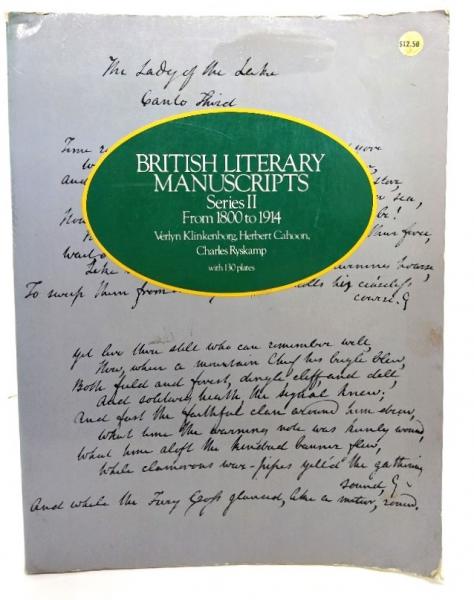 $12.50
The Lady of the Lake
Canto Third
Time yore
And store,
sea,
be!
BRITISH LITERARY
MANUSCRIPTS
Series II
From 1800 to 1914
Verlyn Klinkenborg, Herbert Cahoon,
Charles Ryskamp
with 130 plates
To sweep them from his ceaseless
course.
Yet live there still who can remember well,
How, when a mountain Chief his bugle blew,
Both field and forest, dingle, cliff, and dell,
And solitary heath the signal knew;
And fast the faithful clan around him drew,
What time the warning note was keenly wound,
What time aloft the kindred banner flew,
While clamorous war-pipes yell'd the gathering
sound,
And while the Fiery Cross glanced, like a meteor, round.